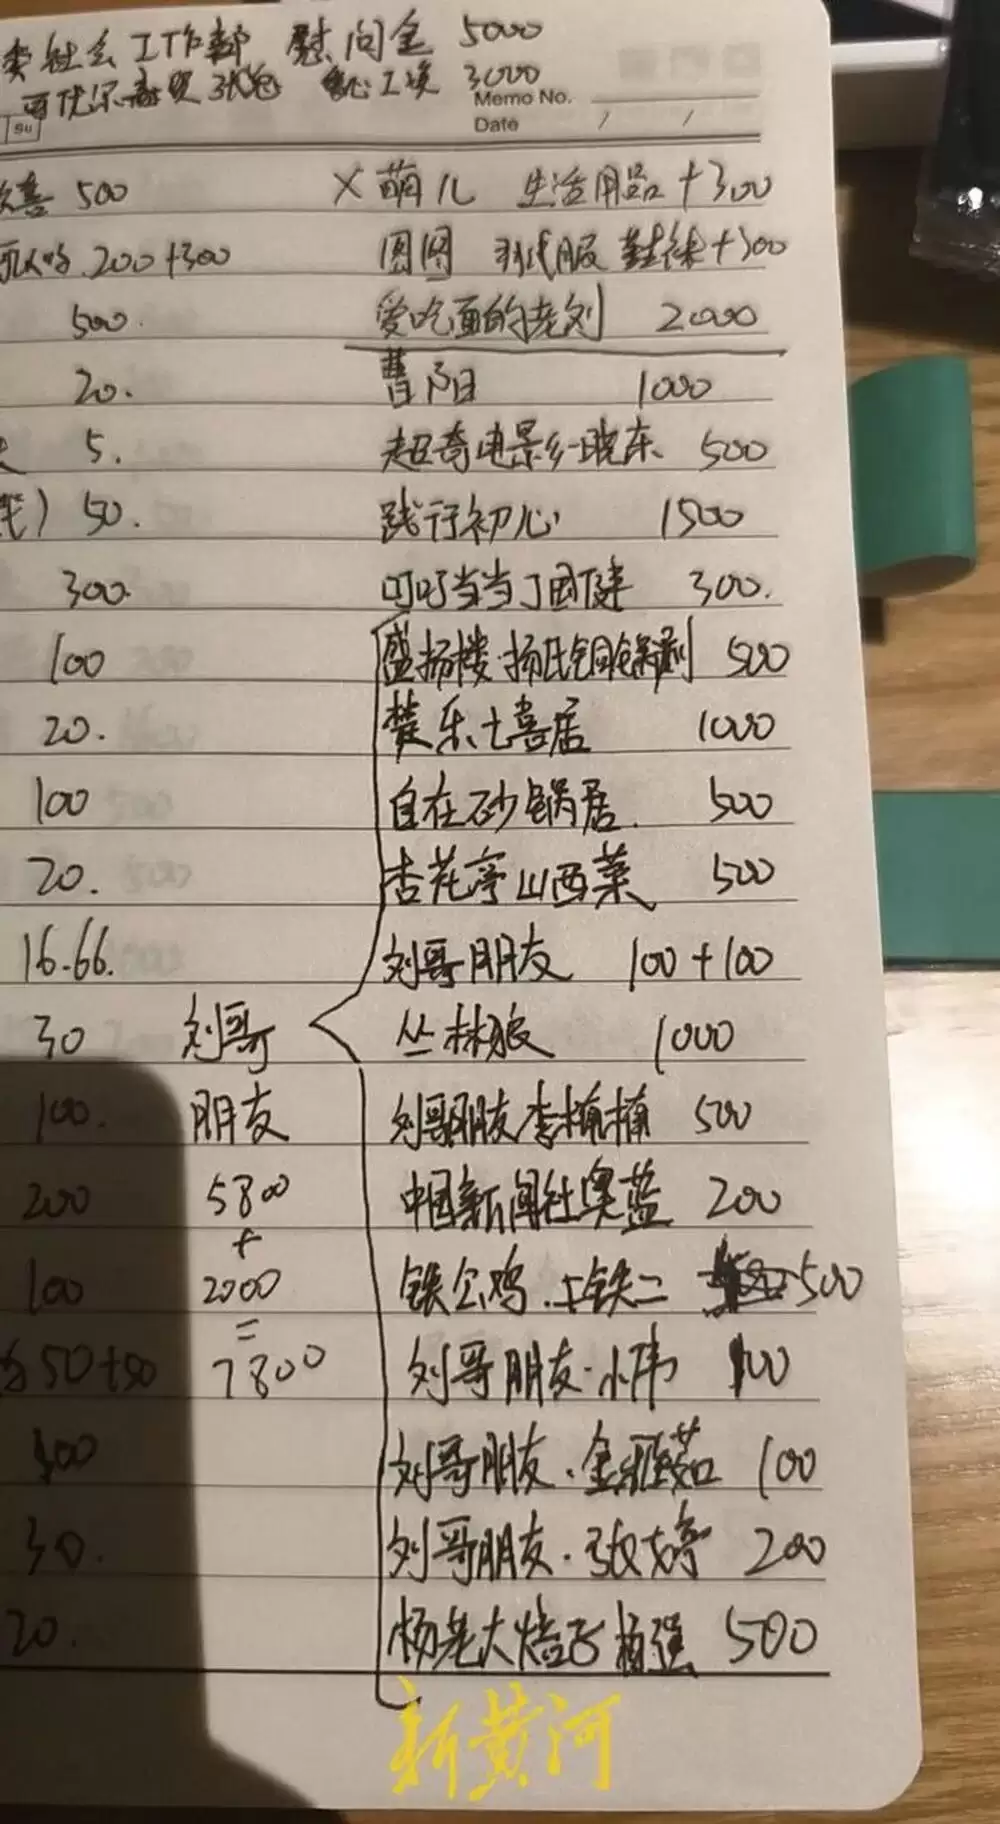 社会工作部 慰问金 5000
3000
Memo No.
Su
Date / /
喜 500 × 萌儿 生活用品 +300
200+300 圆圆 鞋袜+300
500. 爱吃面的老刘 2000
20. 曹阳 1000
5. 超奇电影乡-晓东 500
笔) 50. 践行初心 1500
300. 叮叮当当丁国健 300.
100 盛扬楼·扬氏铜锅涮 500
20. 楚乐七喜居 1000
100 自在砂锅居. 500
20. 杏花亭山西菜 500
16.66. 刘哥朋友 100+100
30 刘哥 丛林狼 1000
100. 朋友 刘哥朋友李楠楠 500
200 5800 中国新闻社奥蓝 200
+
100 2000 铁公鸡·上铁二 500
=
50+50 7800 刘哥朋友·小伟 100
刘哥朋友·金雅茹 100
30. 刘哥朋友·张婷 200
20. 杨老大焙子杨强 500
新黄河